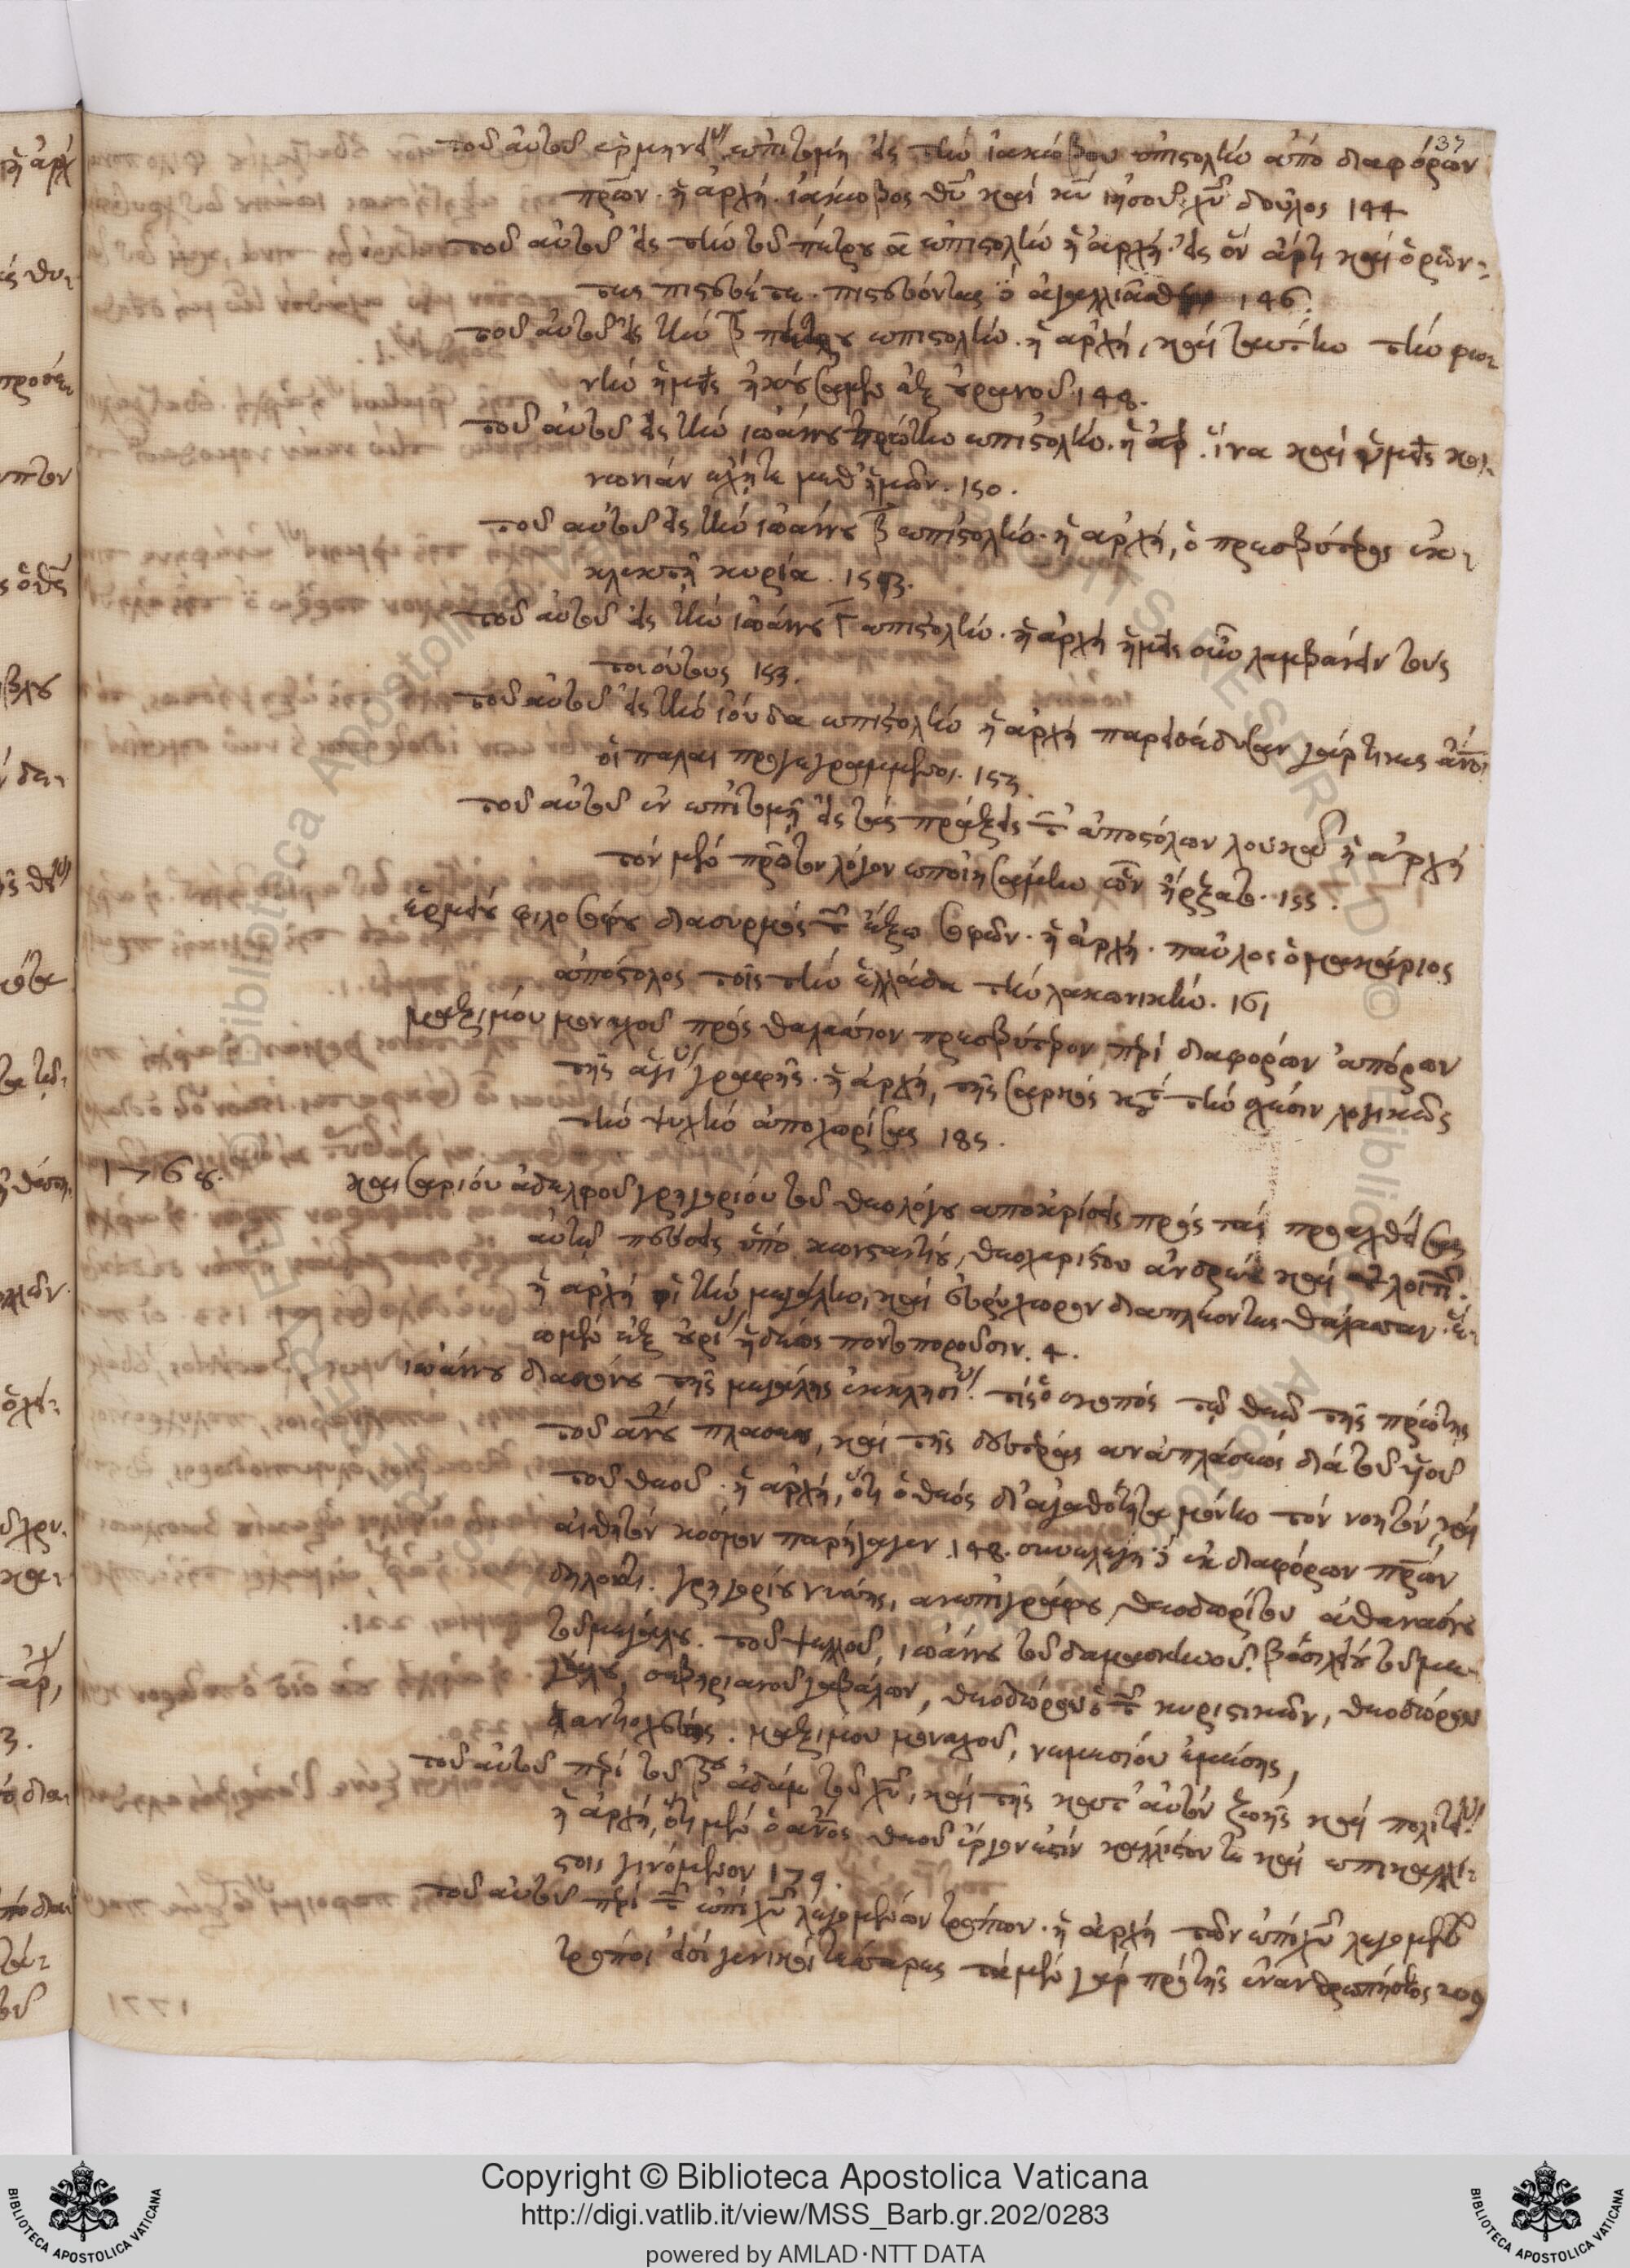 37
τοῦ αὐτοῦ ἑρμηνεία ἐπίτομή εἰς τὴν ἰακώβου ἐπιστολὴν ἀπὸ διαφόρων
πρων· ἡ ἀρχή· ἰάκωβος θυ καὶ κυ ἰησοῦ χυ δοῦλος 144
τοῦ αὐτοῦ εἰς τὴν τοῦ πέτρου α ἐπιστολὴν ἡ ἀρχή· εἰς ὃν ἄρτι καὶ ὁρῶν-
τες πιστεύετε· πιστεύοντες 146.
τοῦ αὐτοῦ εἰς τὴν β πέτρου ἐπιστολὴν· ἡ ἀρχή, καὶ ταύτην τὴν φω-
νὴν ἡμεῖς ἠκούσαμεν ἐξ οὐρανοῦ· 148.
τοῦ αὐτοῦ εἰς τὴν ἰωάννου πρώτην ἐπιστολὴν· ἡ ἀρ. ἵνα καὶ ὑμεῖς κοι-
νωνίαν ἔχητε μεθ' ἡμῶν. 150.
τοῦ αὐτοῦ εἰς τὴν ἰωάννου β ἐπιστολὴν· ἡ ἀρχή, ὁ πρεσβύτερος ἐκ-
λεκτῇ κυρία.
τοῦ αὐτοῦ εἰς τὴν ἰωάννου Γ ἐπιστολὴν· ἡ ἀρχή ἡμεῖς οὖν λαμβάνειν τοὺς
τοιούτους 153.
τοῦ αὐτοῦ εἰς τὴν ἰούδα ἐπιστολὴν ἡ ἀρχή παρεισέδυσαν γάρ τινες ἄνοι
οἱ πάλαι προγεγραμμένοι. 153.
τοῦ αὐτοῦ ἐν ἐπιτομῇ εἰς τὰς πράξεις τῶν ἀποστόλων λουκᾶ ἡ ἀρχή
τὸν μὲν πρῶτον λόγον ἐποιησάμην ὧν ἤρξατο. 155.
ἑρμείου φιλοσόφου διασυρμὸς τῶν ἔξω σοφῶν· ἡ ἀρχή· παῦλος ὁ μακάριος
ἀπόστολος τοῖς τὴν ἑλλάδα τὴν λακωνικὴν. 161
μαξίμου μοναχοῦ πρὸς θαλάσιον πρεσβύτερον περὶ διαφόρων ἀπόρων
τῆς ἁγίας γραφῆς· ἡ ἀρχή, τῆς σαρκὸς κατὰ τὴν σχέσιν λογικῶς
τὴν ψυχὴν ἀποχωρίσας 185.
1768. καισαρίου ἀδελφοῦ γρηγορίου τοῦ θεολόγου ἀποκρίσεις πρὸς τὰς προσαχθείσας
αὐτῷ πεύσεις ὑπὸ κωνσταντίου, θεοχαρίστου ἀνδρέου καὶ λοιπῶν.
ἡ ἀρχή οἱ τὴν μεγάλην, καὶ εὐρύχωρον διαπλέοντες θάλασσαν· ἕ-
ωμεν ἐξ οὐρίας ἡδέως ποντοποροῦσιν. 4.
ἰωάννου διακόνου τῆς μεγάλης ἐκκλησίας. τίς ὁ σκοπὸς τῷ θεῷ τῆς πρώτης
τοῦ ἀνου πλάσεως, καὶ τῆς δευτέρας ἀναπλάσεως διὰ τοῦ υἱοῦ
τοῦ θεοῦ· ἡ ἀρχή, ὅτι ὁ θεὸς δι' ἀγαθότητα μόνην τὸν νοητὸν, καὶ
αἰσθητὸν κόσμον παρήγαγεν. 148. συνελέγη δὲ ἐκ διαφόρων πρων
δηλονότι. γρηγορίου νύσσης, ἀνεπιγράφου, θεοδωρίτου ἀθανασίου
τοῦ μεγάλου. τοῦ ψελλοῦ, ἰωάννου τοῦ δαμασκηνοῦ. βασιλείου τοῦ με-
γάλου, σεβηριανοῦ γαβάλων, θεοδώρου, θεοδώρου
ἀντιοχείας. μαξίμου μοναχοῦ, νεμεσίου ἐμέσης,
τοῦ αὐτοῦ περὶ τοῦ βου ἀδάμ τοῦ χυ, καὶ τῆς κατ' αὐτὸν ζωῆς καὶ πολιτείας
ἡ ἀρχή, ὅτι μὲν ὁ ἄνος θεοῦ ἔργον ἐστὶν κάλλιστόν τε καὶ ἐπικαλλί-
στοις γινόμενον 179.
τοῦ αὐτοῦ περὶ τῶν ἐπὶ χυ λεγομένων τρόπων· ἡ ἀρχή τῶν ἐπὶ χυ λεγομένων
τρόποι εἰσὶ γενικοὶ τέσσαρες τὰ μὲν γὰρ πρὸ τῆς ἐνανθρωπήσεως 209
Copyright © Biblioteca Apostolica Vaticana
http://digi.vatlib.it/view/MSS_Barb.gr.202/0283
powered by AMLAD·NTT DATA